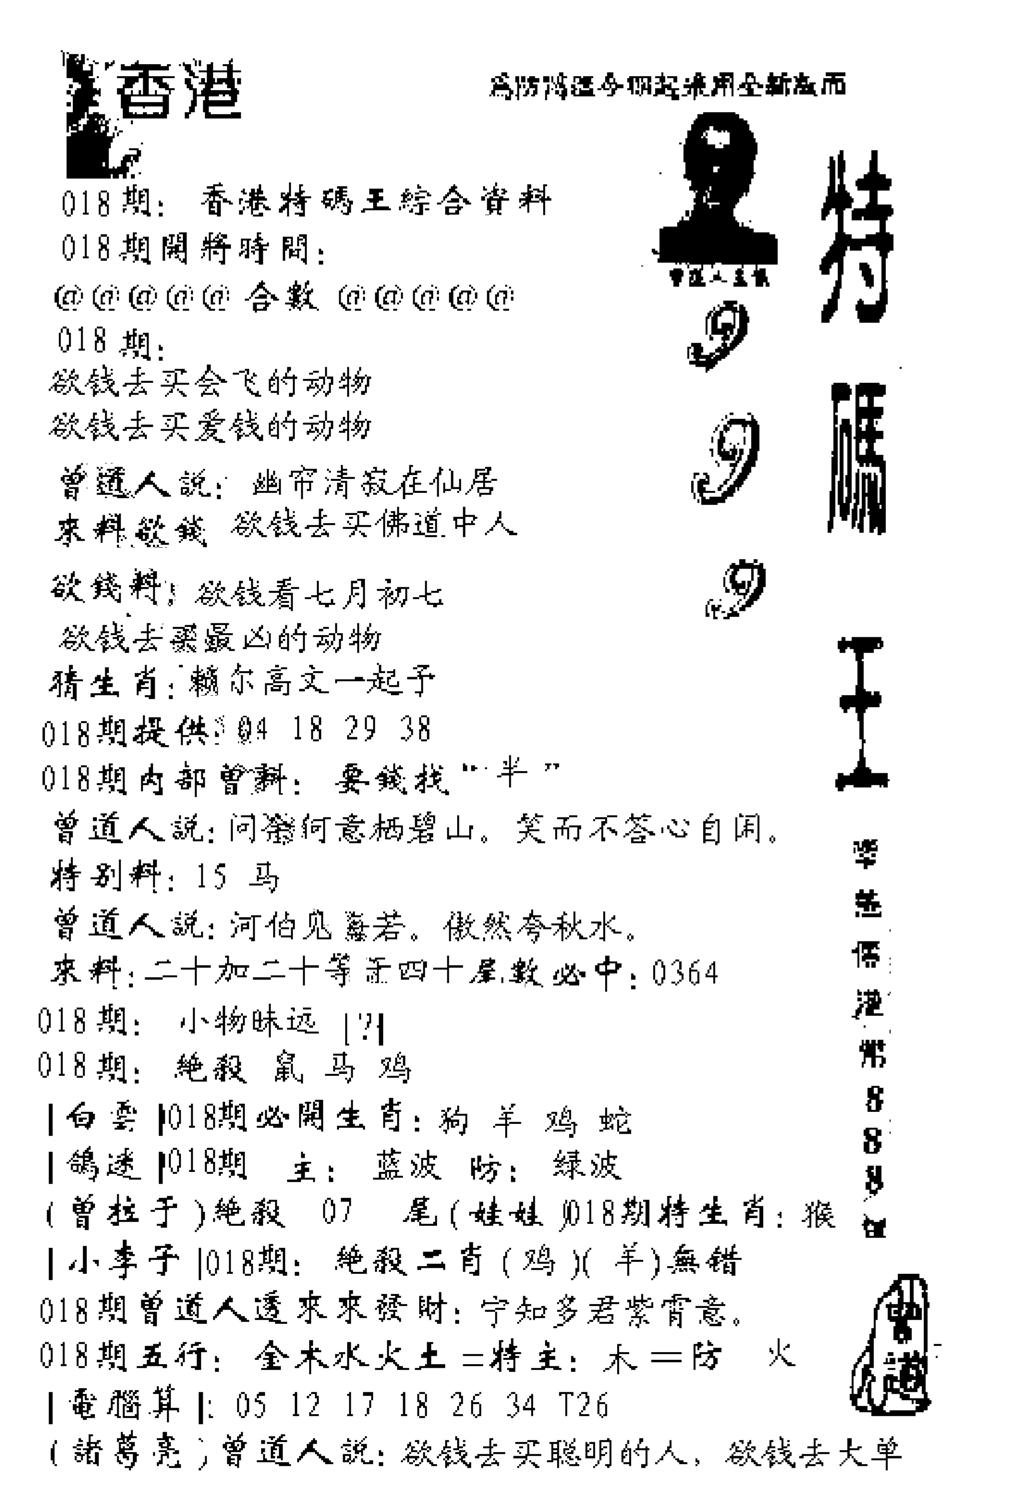 香港
018期：香港特碼王綜合資料
018期開將時間：
@@@@@合數@@@@@
018期：
欲钱去买会飞的动物
欲钱去买爱钱的动物
曾道人説：幽帘清寂在仙居
來料欲錢 欲钱去买佛道中人
欲錢料：欲钱看七月初七
欲钱去買最凶的动物
猜生肖：颓尔高文一起予
018期提供：04 18 29 38
018期内部曾料：要錢找“半”
曾道人説：问余何意栖碧山。笑而不答心自闲。
特别料：15 马
曾道人説：河伯见海若。傲然夸秋水。
來料：二十加二十等于四十尾數必中：0364
018期：小物昧远 |?|
018期：絶殺 鼠 马 鸡
|白雲|018期必開生肖：狗 羊 鸡 蛇
|鴿迷|018期 主：蓝波 防：绿波
(曾拉于)絶殺 07 尾(娃娃)018期特生肖：猴
|小李子|018期：絶殺二肖(鸡)(羊)無錯
018期曾道人透來來發財：宁知多君紫霄意。
018期五行：金木水火土=特主：木=防 火
|電腦算|：05 12 17 18 26 34 T26
(諸葛亮)曾道人説：欲钱去买聪明的人，欲钱去大单
特碼王
9
9
9